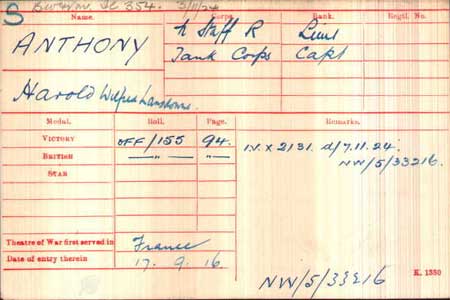 S
354. 3/11/24
Name. Corps. Rank. Regtl. No.
ANTHONY N Staff R Lieut
Tank Corps Capt
Harold Wilfred Lansdowne.
Medal. Roll. Page. Remarks.
VICTORY OFF/155 94. IV X 2131. d/7.11.24.
BRITISH —„— —„— NW/5/33216.
STAR
Theatre of War first served in France
Date of entry therein 17. 9. 16.
NW/5/33216
K. 1380